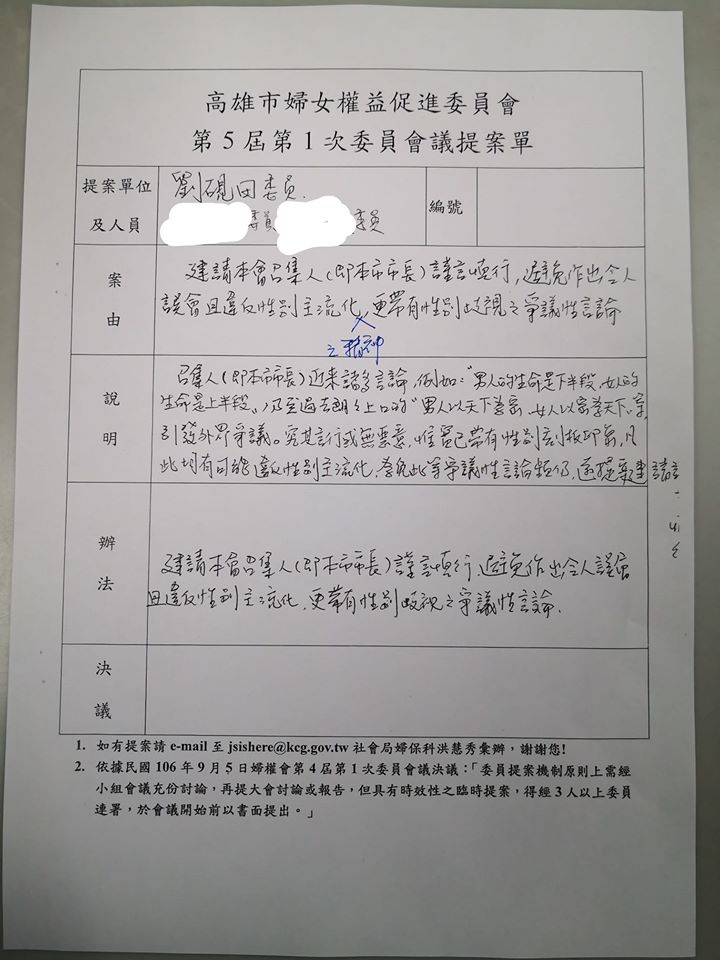 高雄市婦女權益促進委員會
第 5 屆第 1 次委員會議提案單
提案單位
及人員
劉硯田委員.
委員
委員
編號
案
由
建請本會召集人(即本市市長)謹言慎行,避免作出令人
誤會且違反性別主流化,更帶有性別歧視之爭議性言論
之精神
說
明
召集人(即本市市長)近來諸多言論,例如:"男人的生命是下半段、女人的
生命是上半段、乃至過去朗朗上口的"男人以天下為家、女人以家為天下、
引發外界爭議。究其言行或無惡意,惟皆已帶有性別刻板印象,凡
此均有可能違反性別主流化,為免此等爭議性言論頻仍,遂提案建議
辦
法
建請本會召集人(即本市市長)謹言慎行、避免作出令人誤會
且違反性別主流化、更帶有性別歧視之爭議性言論.
決
議
1. 如有提案請 e-mail 至 jsishere@kcg.gov.tw 社會局婦保科洪慧秀彙辦,謝謝您!
2. 依據民國 106 年 9 月 5 日婦權會第 4 屆第 1 次委員會議決議:「委員提案機制原則上需經
小組會議充份討論,再提大會討論或報告,但具有時效性之臨時提案,得經 3 人以上委員
連署,於會議開始前以書面提出。」